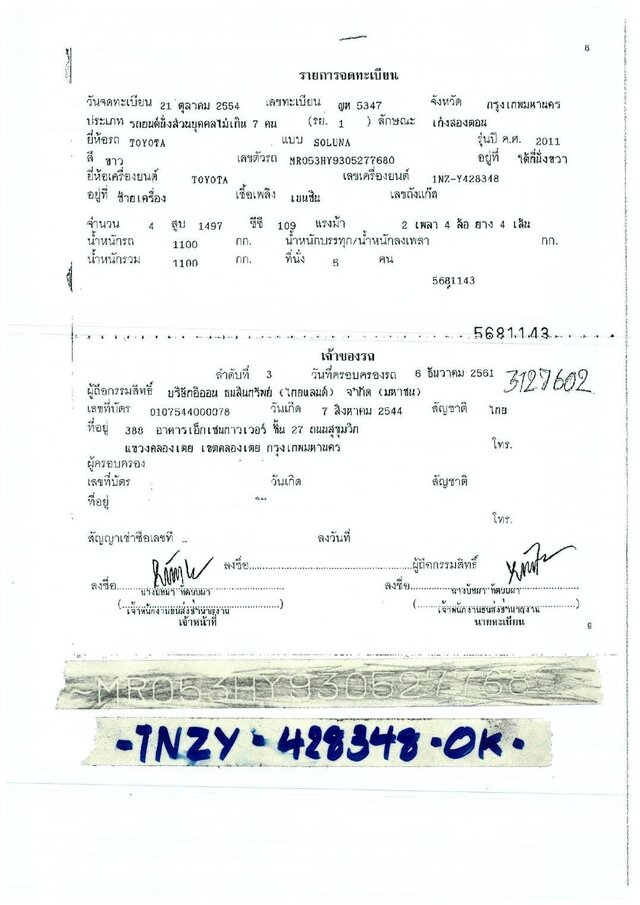 8
รายการจดทะเบียน
วันจดทะเบียน 21 ตุลาคม 2554 เลขทะเบียน ญห 5347 จังหวัด กรุงเทพมหานคร
ประเภท รถยนต์นั่งส่วนบุคคลไม่เกิน 7 คน (รย. 1 ) ลักษณะ เก๋งสองตอน
ยี่ห้อรถ TOYOTA แบบ SOLUNA รุ่นปี ค.ศ. 2011
สี ขาว เลขตัวรถ MR053HY9305277680 อยู่ที่ ใต้ที่นั่งขวา
ยี่ห้อเครื่องยนต์ TOYOTA เลขเครื่องยนต์ 1NZ-Y428348
อยู่ที่ ซ้ายเครื่อง เชื้อเพลิง เบนซิน เลขถังแก๊ส
จำนวน 4 สูบ 1497 ซีซี 109 แรงม้า 2 เพลา 4 ล้อ ยาง 4 เส้น
น้ำหนักรถ 1100 กก. น้ำหนักบรรทุก/น้ำหนักลงเพลา กก.
น้ำหนักรวม 1100 กก. ที่นั่ง 5 คน
5681143
5681143
เจ้าของรถ
ลำดับที่ 3 วันที่ครอบครองรถ 6 ธันวาคม 2561 3127602
ผู้ถือกรรมสิทธิ์ บริษัทอิออน ธนสินทรัพย์ (ไทยแลนด์) จำกัด (มหาชน)
เลขที่บัตร 0107544000078 วันเกิด 7 สิงหาคม 2544 สัญชาติ ไทย
ที่อยู่ 388 อาคารเอ็กเชนทาวเวอร์ ชั้น 27 ถนนสุขุมวิท
แขวงคลองเตย เขตคลองเตย กรุงเทพมหานคร โทร.
ผู้ครอบครอง
เลขที่บัตร วันเกิด สัญชาติ
ที่อยู่
โทร.
สัญญาเช่าซื้อเลขที่ ลงวันที่
ลงชื่อ ผู้ถือกรรมสิทธิ์
ลงชื่อ ลงชื่อ
เจ้าพนักงานขนส่งชำนาญงาน เจ้าพนักงานขนส่งชำนาญงาน
เจ้าหน้าที่ นายทะเบียน
9
MR053HY930527768
-1NZY-428348-OK-